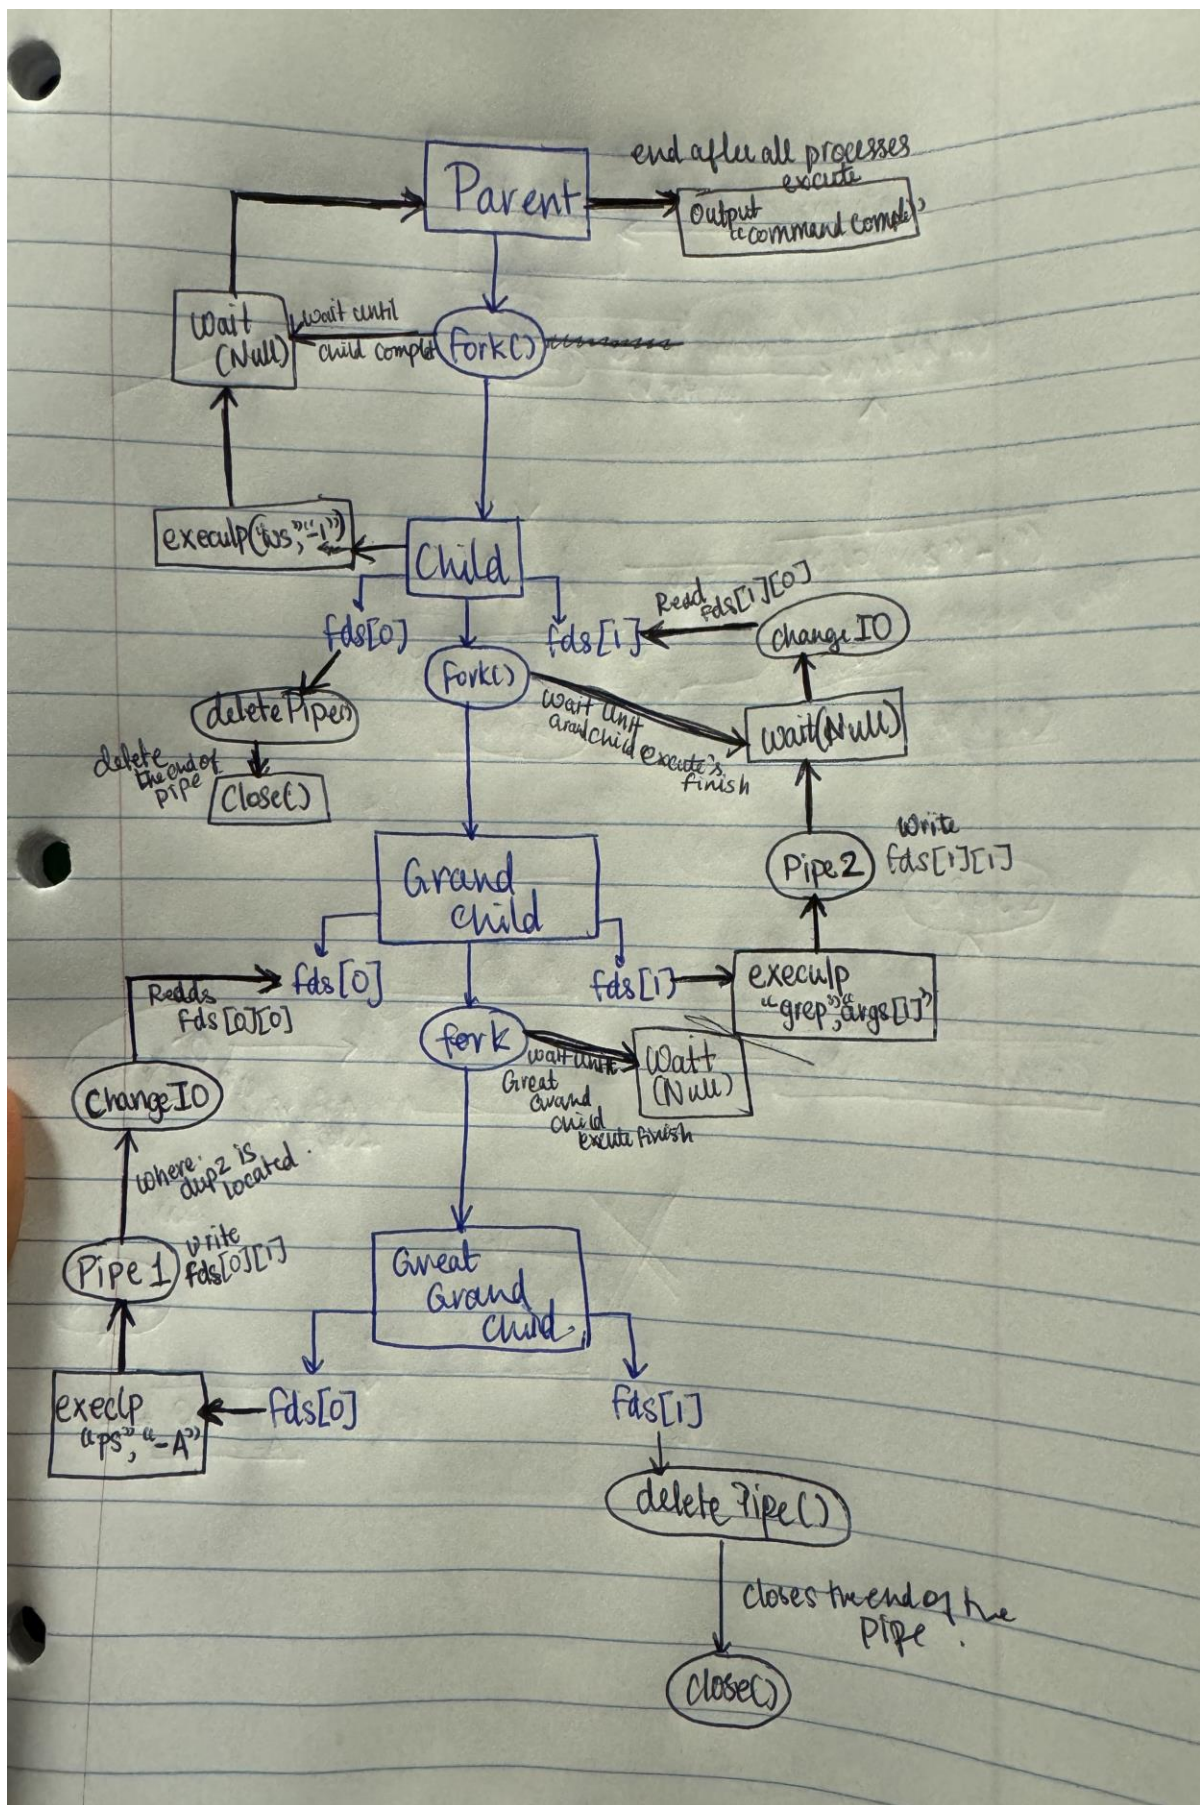 end after all processes
execute
Parent
Output
"command Comple"
Wait
(Null)
Wait until
child complet
fork()
execulp("ws","-1")
Child
Read
fds[1][0]
changeIO
fds[0]
fds[1]
fork()
deletePipe()
Wait unit
Grand Child execute's
finish
wait(Null)
delete
the end of
pipe
Close()
Write
fds[1][1]
Pipe2
Grand
child
fds[0]
fds[1]
execulp
"grep","args[1]"
Redds
fds[0][0]
fork
wait until
Great
Grand
Child
execute finish
Watt
(Null)
ChangeIO
where
dup2 is
located.
Pipe 1
write
fds[0][1]
Great
Grand
Child.
execlp
"ps", "-A"
fds[0]
fds[1]
delete Pipe()
closes the end of the
pipe.
close()